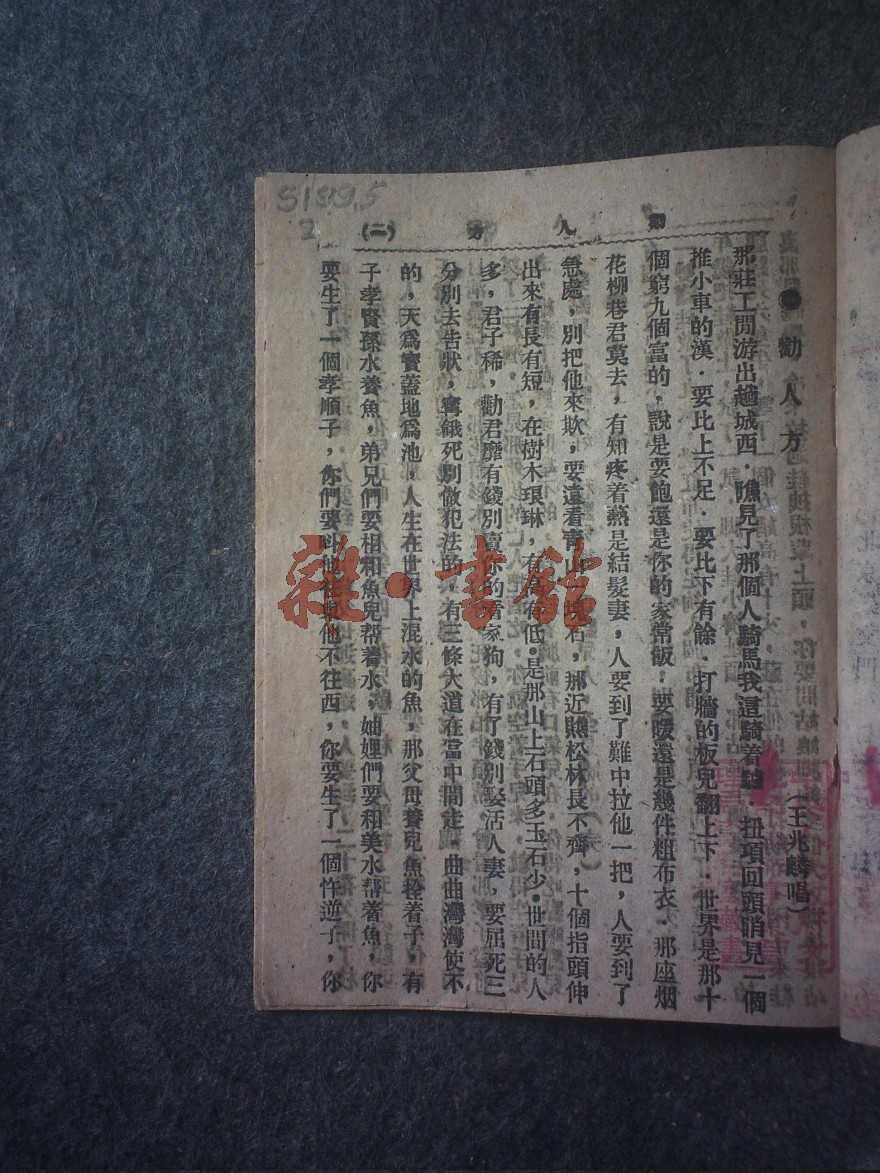 S1995
2
勸人方 (二)
●勸人方 (王兆麟唱)
那莊工閒游出趟城西．瞧見了那個人騎馬我這騎着驢．扭項回頭瞧見一個
推小車的漢．要比上不足．要比下有餘．打牆的板兒翻上下．世界是那十
個窮九個富的，說是要飽還是你的家常飯，要暖還是幾件粗布衣．那座烟
花柳巷君莫去，有知疼着熱是結髮妻，人要到了難中拉他一把，人要到了
急處，別把他來欺，要遠看青山一塊石，那近瞧松林長不齊，十個指頭伸
出來有長有短，在樹木琅琳，有高有低．是那山上石頭多玉石少．世間的人
多，君子稀，勸君靡有錢別賣你的看家狗，有了錢別娶活人妻，要屈死三
分別去告狀，寗餓死別做犯法的，有三條大道在當中間走，曲曲灣灣使不
的，天爲寶蓋地爲池，人生在世界上混水的魚，那父母養兒魚拴着子，有
子孝賢孫水養魚，弟兄們要相和魚兒帮着水，妯娌們要和美水帮着魚，你
要生了一個孝順子，你們要叫他往東他不往西，你要生了一個忤逆子，你
雜·書館